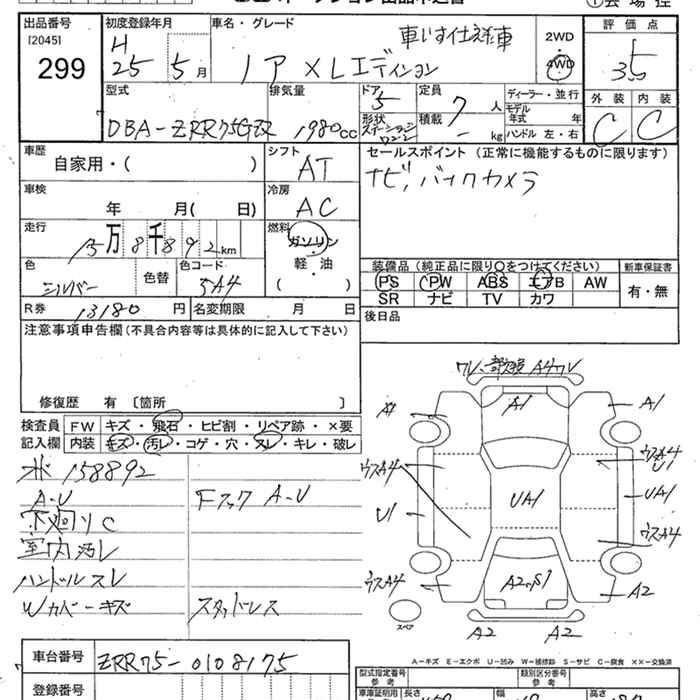 出品番号
[2045]
299
初度登録年月
H
25 5月
車名・グレード
車いす仕様車
ノア XLエディション
2WD
4WD
評価点
3.5
外装 内装
C C
型式
DBA-ZRR75G改
排気量
1980cc
ドア
5
形状
ステーション
ワゴン
定員
7人
積載
- kg
ディーラー・並行
モデル年式 年
ハンドル 左・右
車歴
自家用・( )
シフト
AT
セールスポイント (正常に機能するものに限ります)
ナビ, バックカメラ
車検
年 月( 日)
冷房
AC
走行
15万8千892km
燃料
ガソリン
軽・油
( )
色
シルバー
色替
色コード
5A4
装備品(純正品に限り○をつけてください)
PS PW ABS エアB AW
SR ナビ TV カワ
新車保証書
有・無
R券 13180円
名変期限 月 日
後日品
注意事項申告欄(不具合内容等は具体的に記入して下さい)
修復歴 有 〔箇所 〕
検査員
記入欄
FW キズ・飛石・ヒビ割・リペア跡・×要
内装 キズ・汚レ・コゲ・穴・スレ・キレ・破レ
158892
A-U
Fフック A-U
下廻りC
室内汚レ
ハンドルスレ
Wカバーキズ
スタッドレス
A1 A1
ウスA4 ウスA4
U1
U1 UA1 UA1
ウスA4
ウスA4 A2,S1 A2
スペア
A2 A2
A-キズ E-エクボ U-凹み W-補修跡 S-サビ C-腐食 ××-交換済
車台番号
ZRR75-0108175
登録番号
型式指定番号
参考
類別区分番号
参考
車庫証明用
参考
長さ 幅